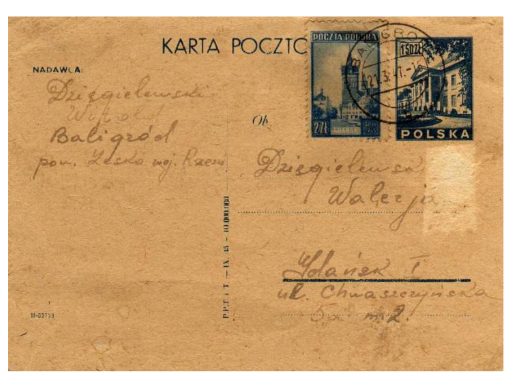 KARTA POCZTO
POCZTA POLSKA
BALIGRÓD
1.50 ZŁ
21.3.47.-1
NADAWCA:
Dzięgielewski
Baligród
pow. Lesko woj. Rzesz
2 ZŁ
GDAŃSK
POLSKA
Ob.
Dzięgielewska
Walerja
Gdańsk I
ul. Chwaszczyńska
m 2.
P.P.T. - T - IX. 45 -